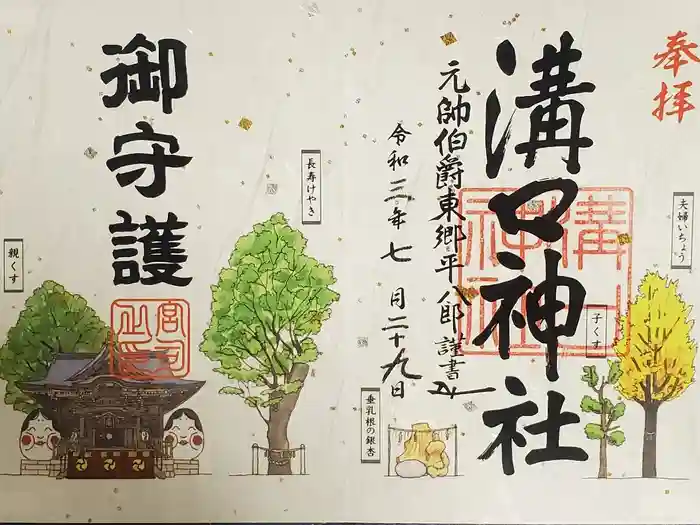 奉拝
溝口神社
溝口神社
元帥伯爵東郷平八郎謹書
令和三年七月二十九日
夫婦いちょう
子くす
垂乳根の銀杏
長寿けやき
御守護
宮司之印
親くす